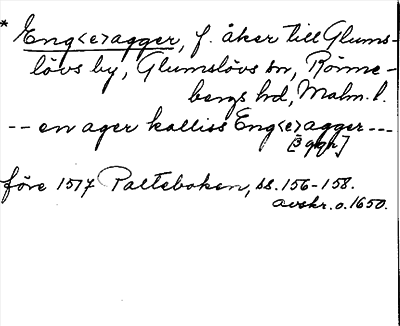 * Eng<e>agger, f. åker till Glums-
lövs by, Glumslövs sn, Rönne-
bergs hd, Malm. l.
-- en ager kalliss Eng<e>agger ---
[3 ggr]
före 1517 Palteboken, ss. 156-158.
avskr. o. 1650.